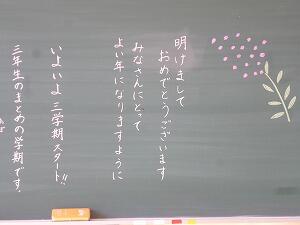 明けまして
おめでとうございます
みなさんにとって
よい年になりますように
いよいよ三学期スタート!!
三年生のまとめの学期です。